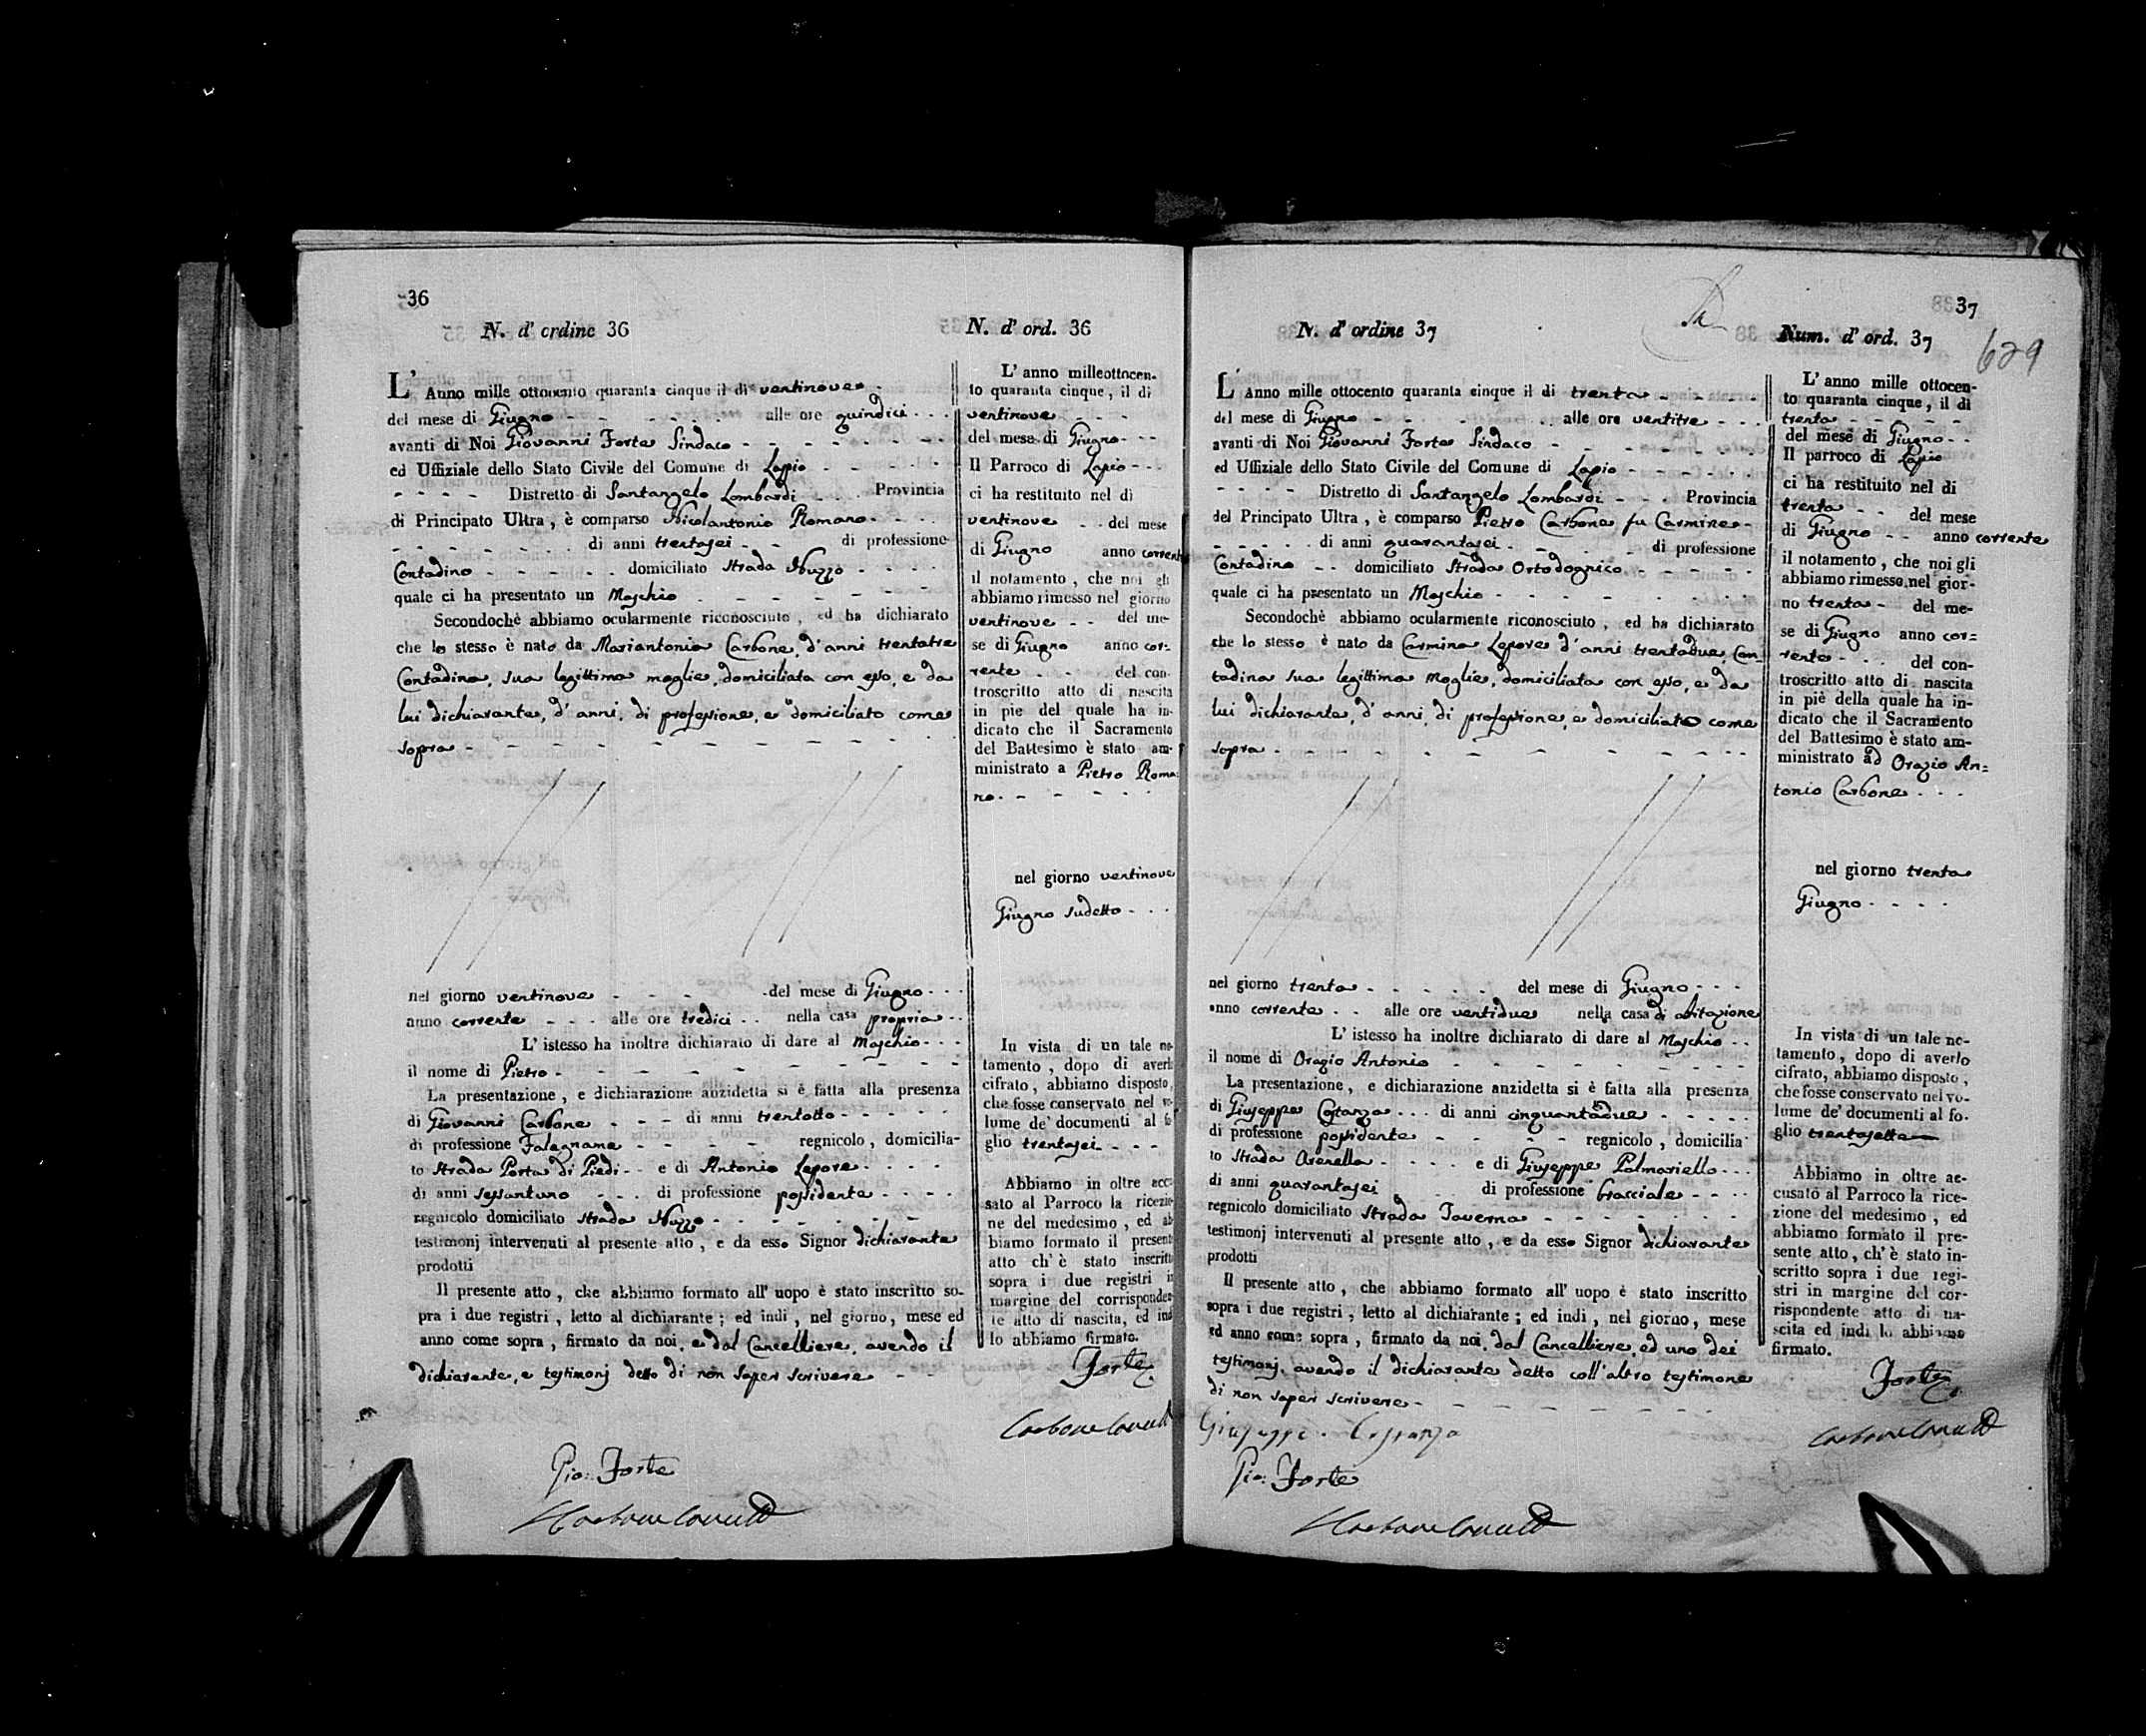 36
N. d' ordine 36
L' Anno mille ottocento quaranta cinque il di ventinove
del mese di Giugno - - - - - alle ore quindici - - -
avanti di Noi Giovanni Forte Sindaco - - - - - - -
ed Uffiziale dello Stato Civile del Comune di Lapio - - - - -
- - - - Distretto di Santangelo Lombardi - - Provincia
di Principato Ultra, è comparso Nicolantonio Romano - - -
- - - - - - - di anni trentasei - - di professione
Contadino - - - - - domiciliato Strada Nuzzo - - - -
quale ci ha presentato un Maschio - - - - - -
Secondochè abbiamo ocularmente riconosciuto, ed ha dichiarato
che lo stesso è nato da Mariantonia Carbone, d'anni trentatre
Contadina, sua legittima moglie, domiciliata con esso, e da
lui dichiarante, d'anni, di professione, e domiciliato come
sopra - - - - - - - - -
nel giorno ventinove - - - - del mese di Giugno - - -
anno corrente - - - alle ore tredici - - nella casa propria - -
L' istesso ha inoltre dichiarato di dare al Maschio - - -
il nome di Pietro - - - - - - - - -
La presentazione, e dichiarazione anzidetta si è fatta alla presenza
di Giovanni Carbone - - - di anni trentotto - - - - -
di professione Falegname - - - - regnicolo, domicilia-
to Strada Porta di Piedi - - e di Antonio Lepore - - - -
di anni sessantuno - - - di professione possidente - - - -
regnicolo domiciliato Strada Nuzzo - - - - - - -
testimonj intervenuti al presente atto, e da esso Signor dichiarante
prodotti
Il presente atto, che abbiamo formato all' uopo è stato inscritto so-
pra i due registri, letto al dichiarante; ed indi, nel giorno, mese ed
anno come sopra, firmato da noi, e dal Cancelliere, avendo il
dichiarante, e testimonj detto di non saper scrivere - -
Gio: Forte
N. d' ord. 36
L' anno milleottocen-
to quaranta cinque, il di
ventinove - - -
del mese di Giugno - - -
Il Parroco di Lapio - - -
ci ha restituito nel dì
ventinove - - del mese
di Giugno anno corrente
il notamento, che noi gli
abbiamo rimesso nel giorno
ventinove - - del me-
se di Giugno anno cor=
rente - - - del con-
troscritto atto di nascita
in pie del quale ha in-
dicato che il Sacramento
del Battesimo è stato am-
ministrato a Pietro Roma=
no - - - - - -
nel giorno ventinove
Giugno sudetto - - -
In vista di un tale no-
tamento, dopo di averlo
cifrato, abbiamo disposto,
che fosse conservato nel vo-
lume de' documenti al fo-
glio trentasei - - - -
Abbiamo in oltre accu-
sato al Parroco la ricezio-
ne del medesimo, ed ab-
biamo formato il presente
atto ch' è stato inscritto
sopra i due registri in
margine del corrisponden-
te atto di nascita, ed indi
lo abbiamo firmato.
Forte
37
N. d' ordine 37
L' Anno mille ottocento quaranta cinque il di trenta - - - - -
del mese di Giugno - - - - - alle ore ventitre - - -
avanti di Noi Giovanni Forte Sindaco - - - - - - -
ed Uffiziale dello Stato Civile del Comune di Lapio - - - - -
- - - - Distretto di Santangelo Lombardi - - - Provincia
del Principato Ultra, è comparso Pietro Carbone fu Carmine -
- - - - - di anni quarantasei - - - - di professione
Contadino - - domiciliato Strada Ortodognico - - - - -
quale ci ha presentato un Maschio - - - - - - -
Secondochè abbiamo ocularmente riconosciuto, ed ha dichiarato
che lo stesso è nato da Carmina Lepore d'anni trentadue, Con=
tadina sua legittima moglie, domiciliata con esso, e da
lui dichiarante, d'anni, di professione, e domiciliato come
sopra - - - - - - - - -
nel giorno trenta - - - - - del mese di Giugno - - -
anno corrente - - alle ore ventidue nella casa di abitazione
L' istesso ha inoltre dichiarato di dare al Maschio - -
il nome di Orazio Antonio - - - - - - -
La presentazione, e dichiarazione anzidetta si è fatta alla presenza
di Giuseppe Costanza - - - di anni cinquantadue - - - -
di professione possidente - - - - regnicolo, domicilia-
to Strada Arenella - - - - e di Giuseppe Palmariello - - -
di anni quarantasei di professione bracciale - - - -
regnicolo domiciliato Strada Taverna - - - - - - -
testimonj intervenuti al presente atto, e da esso Signor dichiarante
prodotti
Il presente atto, che abbiamo formato all' uopo è stato inscritto
sopra i due registri, letto al dichiarante; ed indi, nel giorno, mese
ed anno come sopra, firmato da noi, dal Cancelliere, ed uno dei
testimonj, avendo il dichiarante detto coll'altro testimone
di non saper scrivere - - - - - - - -
Giuseppe Costanza
Gio: Forte
Num. d' ord. 37
629
L' anno mille ottocen-
to quaranta cinque, il di
trenta - - - - -
del mese di Giugno - -
Il parroco di Lapio
ci ha restituito nel di
trenta - - del mese
di Giugno - - anno corrente
il notamento, che noi gli
abbiamo rimesso nel gior-
no trenta - del me-
se di Giugno anno cor=
rente - - - del con-
troscritto atto di nascita
in piè della quale ha in-
dicato che il Sacramento
del Battesimo è stato am-
ministrato ad Orazio An=
tonio Carbone - - -
nel giorno trenta
Giugno - - - -
In vista di un tale no-
tamento, dopo di averlo
cifrato, abbiamo disposto,
che fosse conservato nel vo-
lume de' documenti al fo-
glio trentasette
Abbiamo in oltre ac-
cusato al Parroco la rice-
zione del medesimo, ed
abbiamo formato il pre-
sente atto, ch' è stato in-
scritto sopra i due regi-
stri in margine del cor-
rispondente atto di na-
scita ed indi lo abbiamo
firmato.
Forte